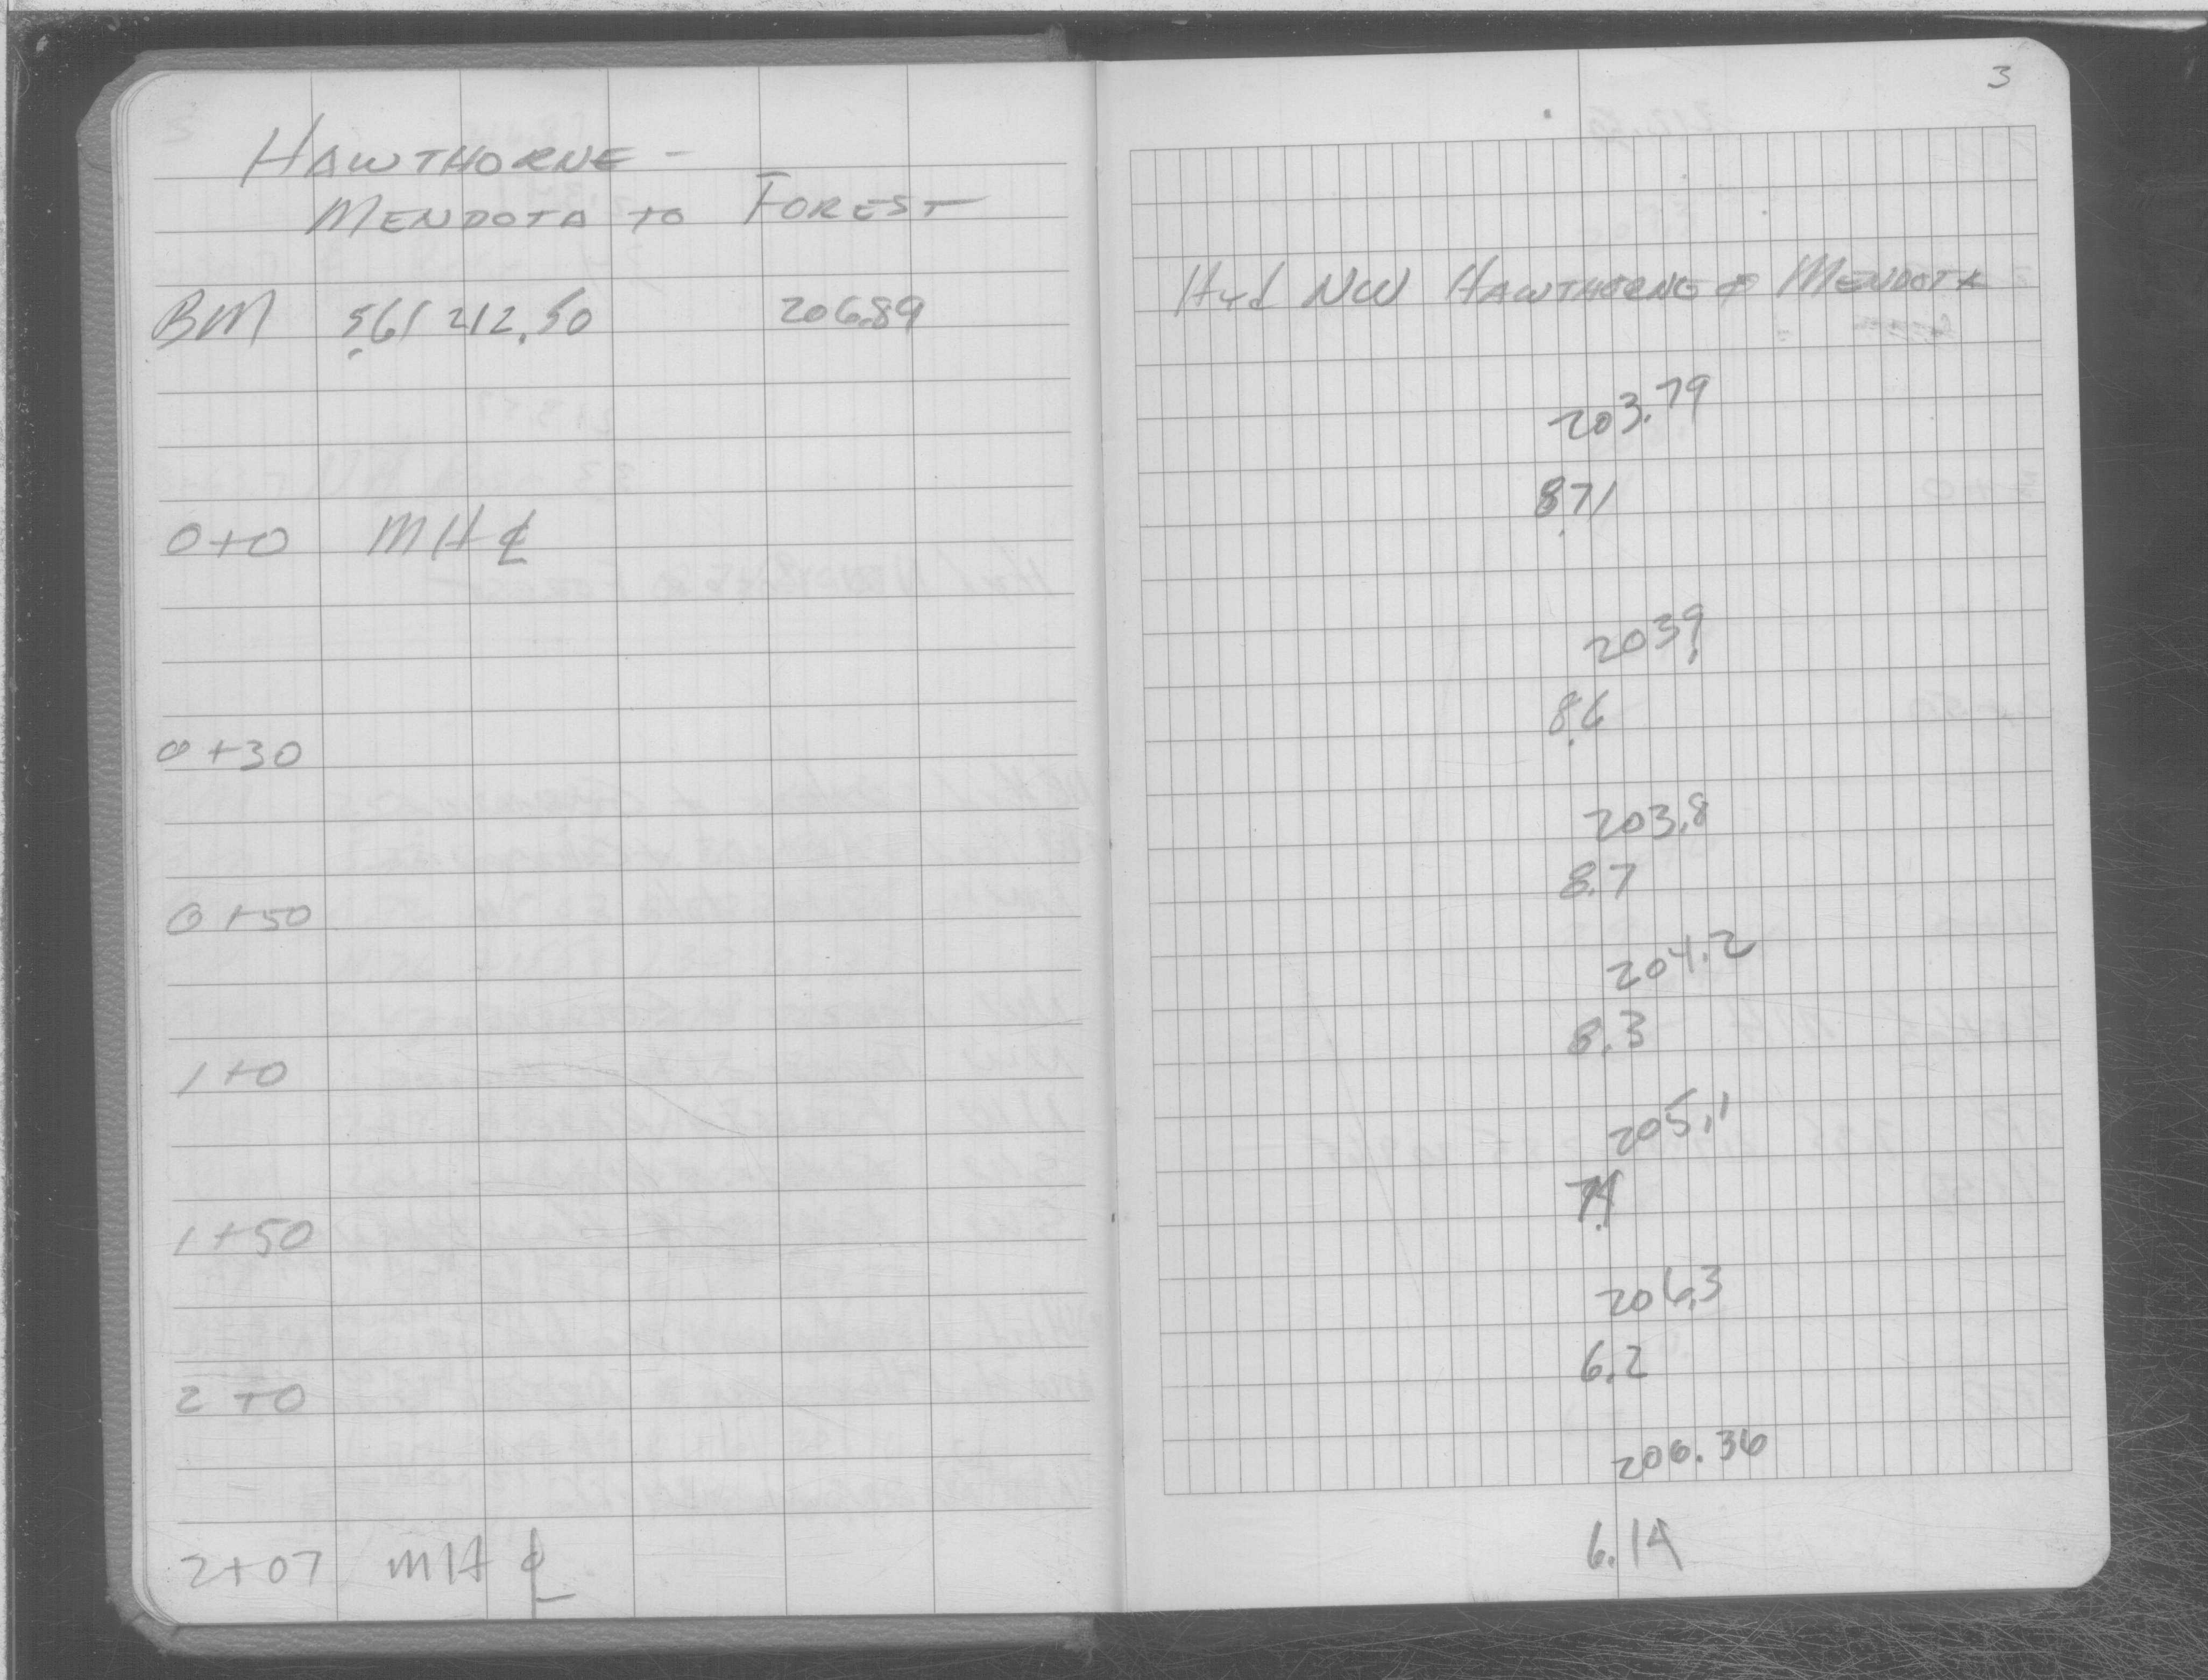 3
HAWTHORNE -
MENDOTA TO FOREST
BM 5.61 212.50 206.89 Hyd NW HAWTHORNE & MENDOTA
203.79
0+0 MH ℄ 8.71
203.9
0+30 8.6
203.8
0+50 8.7
204.2
1+0 8.3
205.1
1+50 7.4
206.3
2+0 6.2
206.36
2+07 MH ℄ 6.14